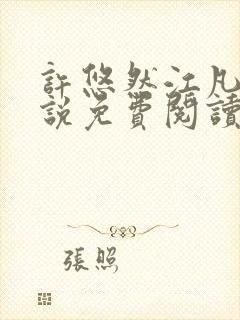 許悠然江凡
說免費閱讀
張照